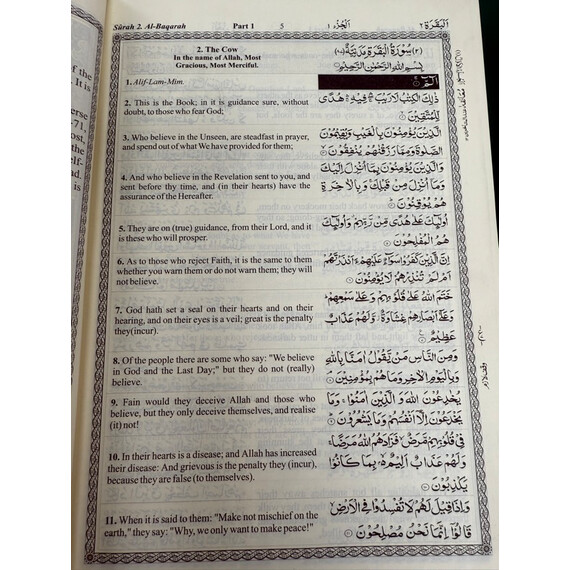 Sûrah 2. Al-Baqarah Part 1 5 الجزء ١ البقرة ٢
2. The Cow
In the name of Allah, Most
Gracious, Most Merciful.
1. Alif-Lam-Mim.
2. This is the Book; in it is guidance sure, without
doubt, to those who fear God;
3. Who believe in the Unseen, are steadfast in prayer,
and spend out of what We have provided for them;
4. And who believe in the Revelation sent to you, and
sent before thy time, and (in their hearts) have the
assurance of the Hereafter.
5. They are on (true) guidance, from their Lord, and it
is these who will prosper.
6. As to those who reject Faith, it is the same to them
whether you warn them or do not warn them; they will
not believe.
7. God hath set a seal on their hearts and on their
hearing, and on their eyes is a veil; great is the penalty
they(incur).
8. Of the people there are some who say: "We believe
in God and the Last Day;" but they do not (really)
believe.
9. Fain would they deceive Allah and those who
believe, but they only deceive themselves, and realise
(it) not!
10. In their hearts is a disease; and Allah has increased
their disease: And grievous is the penalty they (incur),
because they are false (to themselves).
11. When it is said to them: "Make not mischief on the
earth," they say: "Why, we only want to make peace!"
(٢) سُوْرَةُ الْبَقَرَةِ مَدَنِيَّةٌ
بِسْمِ اللهِ الرَّحْمٰنِ الرَّحِيْمِ
الٓمّٓ
ذٰلِكَ الْكِتٰبُ لَا رَيْبَ فِيْهِ هُدًى
لِّلْمُتَّقِيْنَ
الَّذِيْنَ يُؤْمِنُوْنَ بِالْغَيْبِ وَيُقِيْمُوْنَ
الصَّلٰوةَ وَمِمَّا رَزَقْنٰهُمْ يُنْفِقُوْنَ
وَالَّذِيْنَ يُؤْمِنُوْنَ بِمَآ اُنْزِلَ اِلَيْكَ
وَمَآ اُنْزِلَ مِنْ قَبْلِكَ وَبِالْاٰخِرَةِ
هُمْ يُوْقِنُوْنَ
اُولٰٓئِكَ عَلٰى هُدًى مِّنْ رَّبِّهِمْ وَاُولٰٓئِكَ
هُمُ الْمُفْلِحُوْنَ
اِنَّ الَّذِيْنَ كَفَرُوْا سَوَآءٌ عَلَيْهِمْ ءَاَنْذَرْتَهُمْ
اَمْ لَمْ تُنْذِرْهُمْ لَا يُؤْمِنُوْنَ
خَتَمَ اللهُ عَلٰى قُلُوْبِهِمْ وَعَلٰى سَمْعِهِمْ
وَعَلٰٓى اَبْصَارِهِمْ غِشَاوَةٌ وَّلَهُمْ عَذَابٌ
عَظِيْمٌ
وَمِنَ النَّاسِ مَنْ يَّقُوْلُ اٰمَنَّا بِاللهِ
وَبِالْيَوْمِ الْاٰخِرِ وَمَا هُمْ بِمُؤْمِنِيْنَ
يُخٰدِعُوْنَ اللهَ وَالَّذِيْنَ اٰمَنُوْا وَمَا
يَخْدَعُوْنَ اِلَّآ اَنْفُسَهُمْ وَمَا يَشْعُرُوْنَ
فِيْ قُلُوْبِهِمْ مَّرَضٌ فَزَادَهُمُ اللهُ مَرَضًا
وَلَهُمْ عَذَابٌ اَلِيْمٌ بِمَا كَانُوْا
يَكْذِبُوْنَ
وَاِذَا قِيْلَ لَهُمْ لَا تُفْسِدُوْا فِي الْاَرْضِ
قَالُوْٓا اِنَّمَا نَحْنُ مُصْلِحُوْنَ